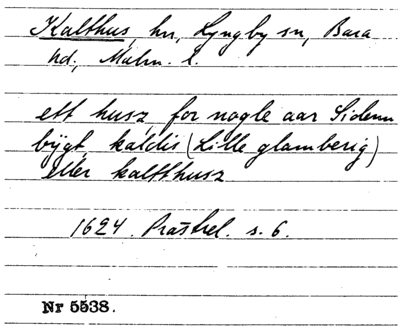 Kalthus, hn, Lyngby sn, Bara
hd., Malm. l.
ett husz for nogle aar Sidenn
bÿgt, kaldis (Lille glamberig)
eller kaltthusz
1624. Prästrel. s. 6.
Nr 5538.